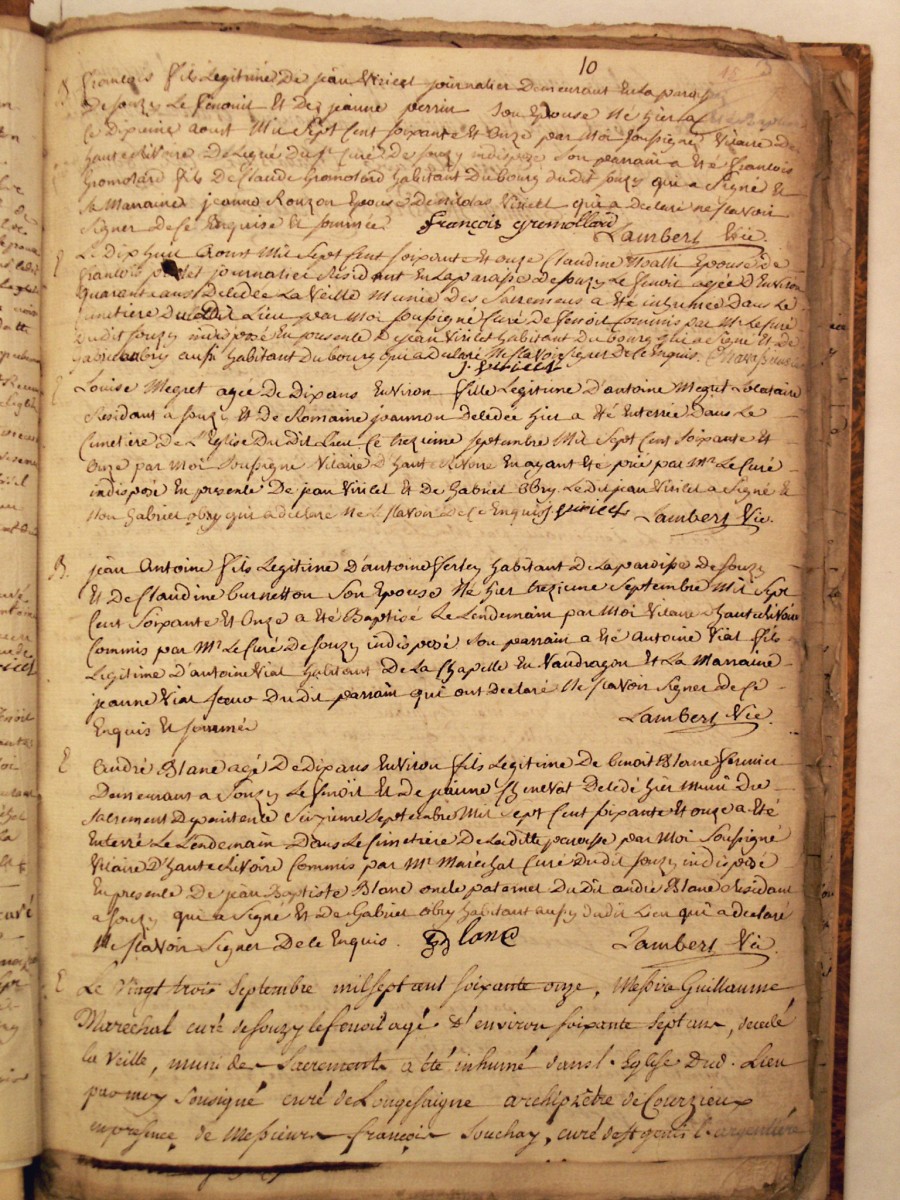 10
B françois fils Legitime De jean Viricel journalier Demeurant En La paroisse
De souzy Le fenouil Et De jeanne perrin son Epouse Né hier
Ce dixieme aout Mil sept Cent soixante Et Onze par Moi soussigné Vicaire de
haute Rivoire Curé De souzy indisposé son parrain a Eté françois
Gromolard fils De Claude Gromolard habitant Du bourg du dit souzy qui a signé Et
la Marraine jeanne Rouzon Epouse De nicolas Viricel qui a Déclaré ne sçavoir
signer De ce Enquise Et sommée françois gremollard
Lambert Vic.
E Le dix huit aoust Mil sept Cent soixante Et onze Claudine Epouse de
françois journalier Résidant En La paroisse De souzy Le fenoil agée D'Environ
quarente ans Décédée La Veille Munie Des sacremens a été inhumée Dans Le
Cimetière Du dit Lieu par Moi soussigné Curé De fenoil Commis par Mr Le Curé
du dit souzy indisposé En présence De jean Viricel habitant Du bourg qui a signé Et De
gabriel obry aussi habitant Du bourg qui a déclaré Ne sçavoir signer De ce Enquis.
j. viricel
E Louise Megret agée De Dix ans Environ fille Legitime D'antoine Megret Locataire
Résidant a souzy Et De Romaine joannon Décédée hier a été Enterrée Dans Le
Cimetiere De L'Eglise Du Dit Lieu Ce trezieme septembre Mil sept Cent soixante Et
Onze par Moi soussigné Vicaire D'haute Rivoire En ayant Eté prié par Mr Le Curé
indisposé En présence De jean Viricel Et De Gabriel Obry. Le dit jean Viricel a signé Et
Non Gabriel obry qui a déclaré Ne sçavoir De ce Enquis j viricel Lambert Vic.
B. jean Antoine fils Legitime D'antoine habitant De La paroisse De souzy
Et De Claudine burnetton son Epouse Né hier trezieme septembre Mil sept
Cent soixante Et Onze a Eté Baptisé Le Lendemain par Moi Vicaire d'haute Rivoire
Commis par Mr Le Curé De souzy indisposé son parrain a Eté Antoine Vial fils
Legitime D'antoine Vial habitant De La Chapelle En Vaudragon Et La Marraine
jeanne Vial soeur Du Dit parrain qui ont déclaré Ne sçavoir signer De Ce
Enquis Et sommés Lambert Vic.
E André Blanc agé De Dix ans Environ fils Legitime De benoit Blanc fermier
Demeurant a souzy Le fenoil Et De jeanne Décédé hier Muni Du
sacrement De pénitence seizieme septembre Mil sept Cent soixante Et onze a Eté
Enterré Le Lendemain Dans Le Cimetière De La ditte paroisse par Moi soussigné
Vicaire D'haute Rivoire Commis par Mr Maréchal Curé Du dit souzy indisposé
En présence De jean Baptiste Blanc oncle paternel Du Dit andré Blanc Résidant
a souzy qui a signé Et De Gabriel obry habitant aussy du dit Lieu qui a déclaré
Ne sçavoir signer De Ce Enquis. Blanc Lambert Vic
E Le Vingt trois septembre mil sept cent soixante onze, Messire Guillaume
Marechal curé de souzy le fenoil agé d'environ soixante sept ans, decedé
la Veille, muni des Sacrements a été inhumé dans l'Eglise dud. Lieu
par moy sousigné curé de Longesaigne archiprêtre de Courzieux
en présence de Messieurs françois Souchay, curé de st genis l'argentiere